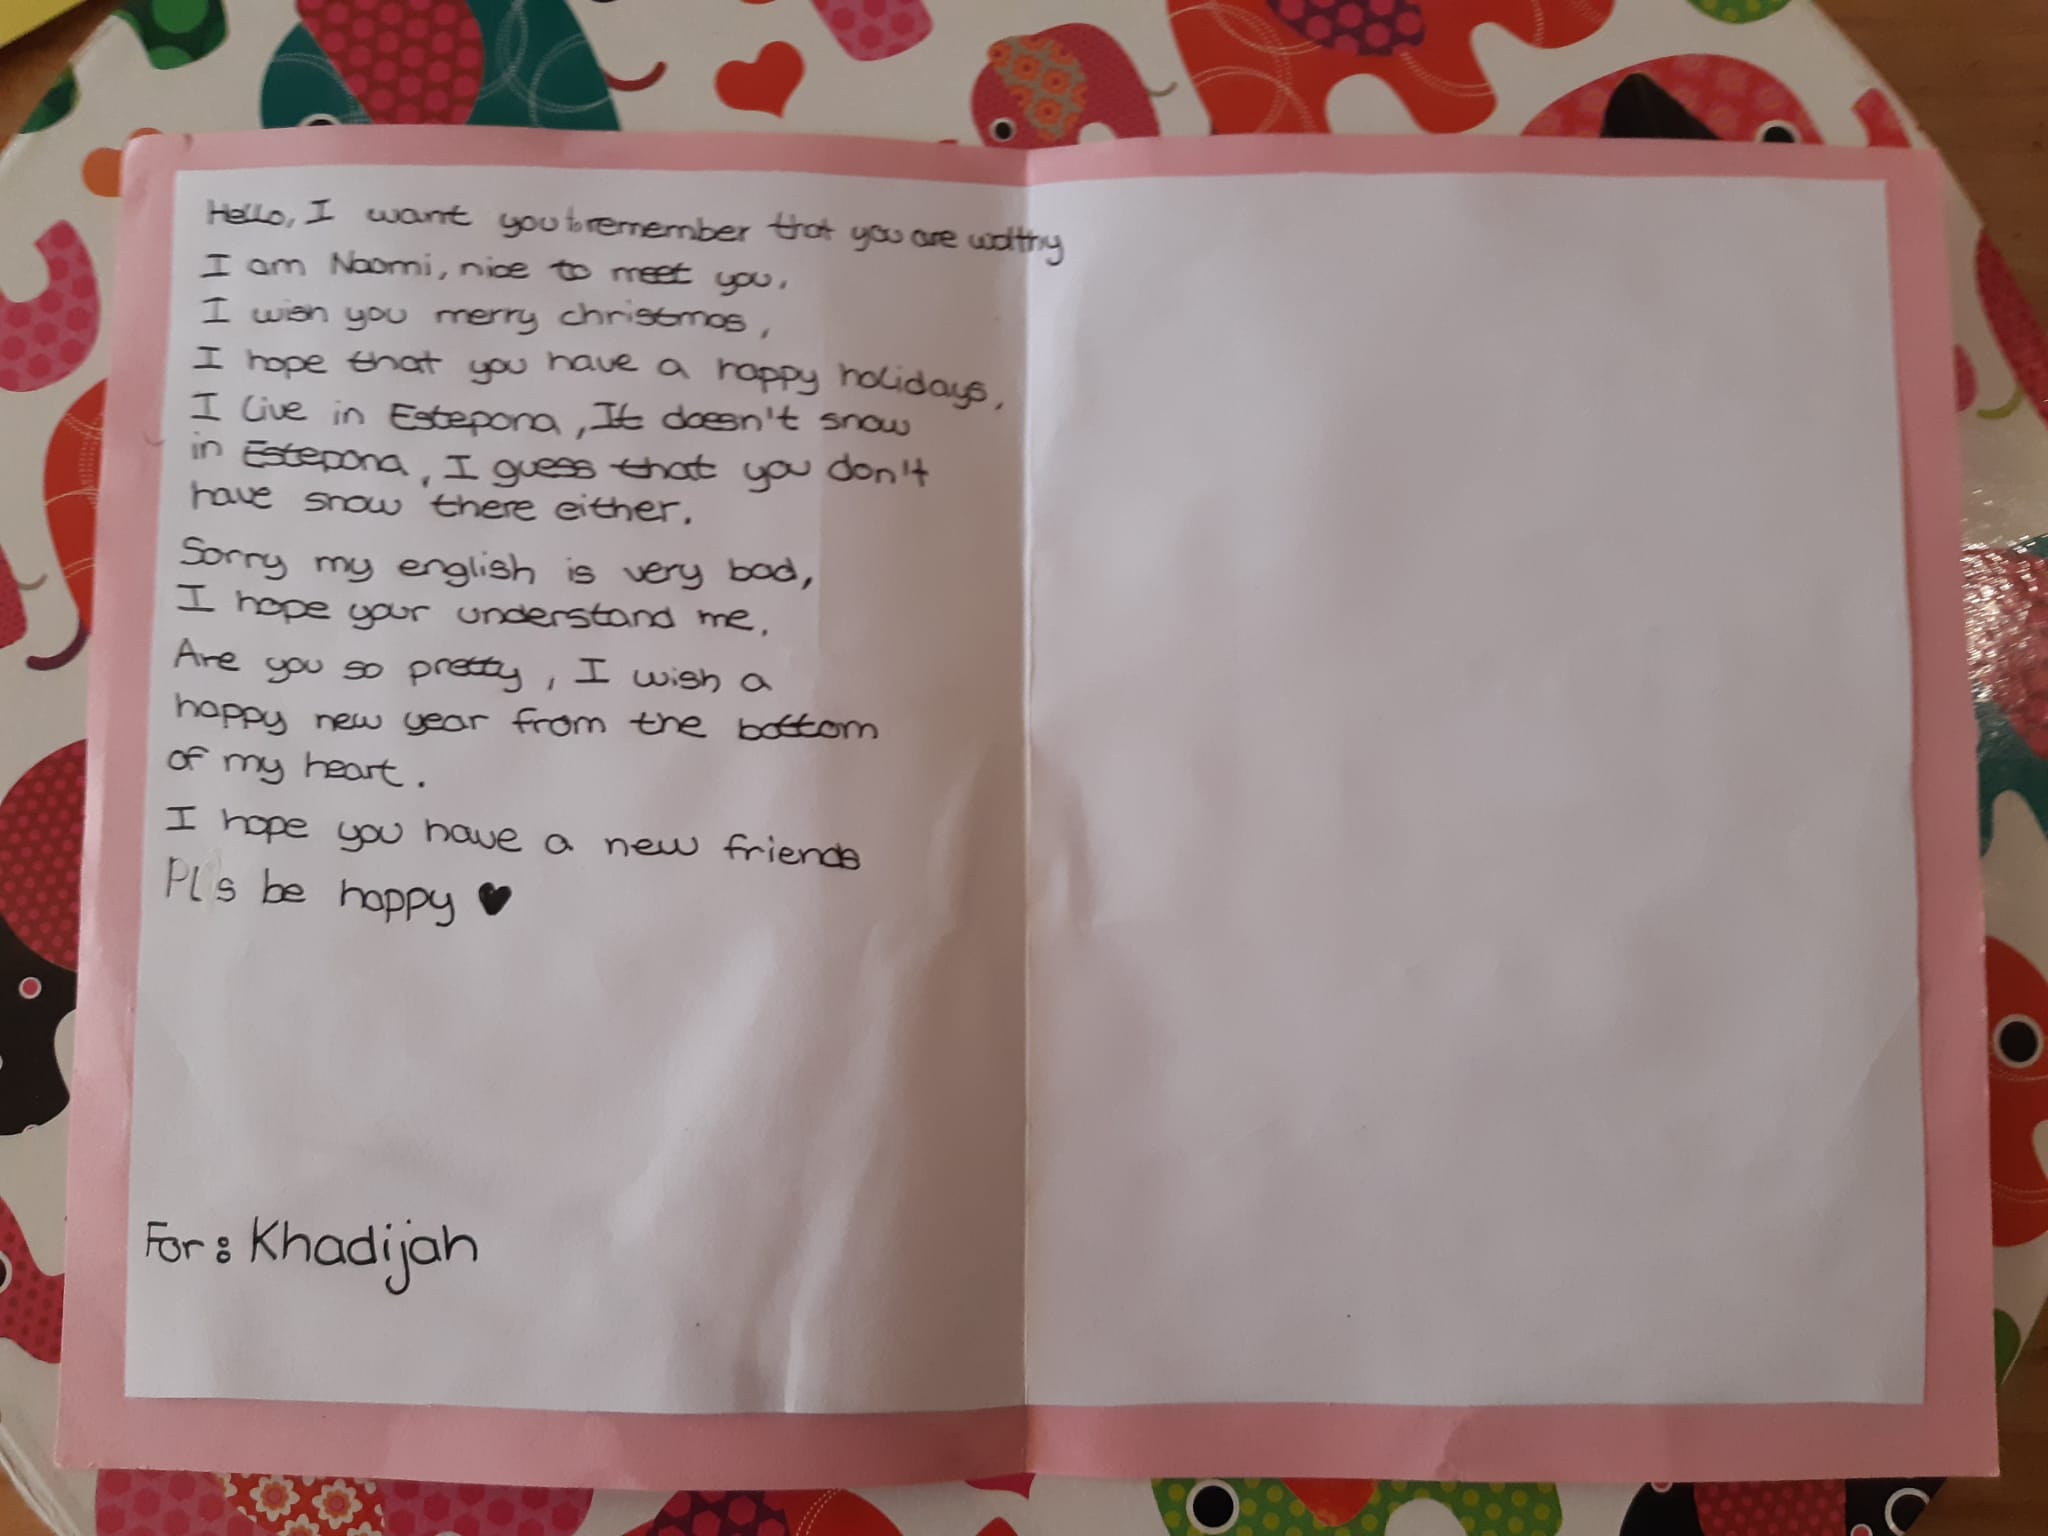 Hello, I want you to remember that you are wotthy
I am Naomi, nice to meet you.
I wish you merry christmas,
I hope that you have a happy holidays,
I live in Estepona, It doesn't snow
in Estepona, I guess that you don't
have snow there either.
Sorry my english is very bad,
I hope your understand me.
Are you so pretty, I wish a
happy new year from the bottom
of my heart.
I hope you have a new friends
Pls be happy ♥
For: Khadijah